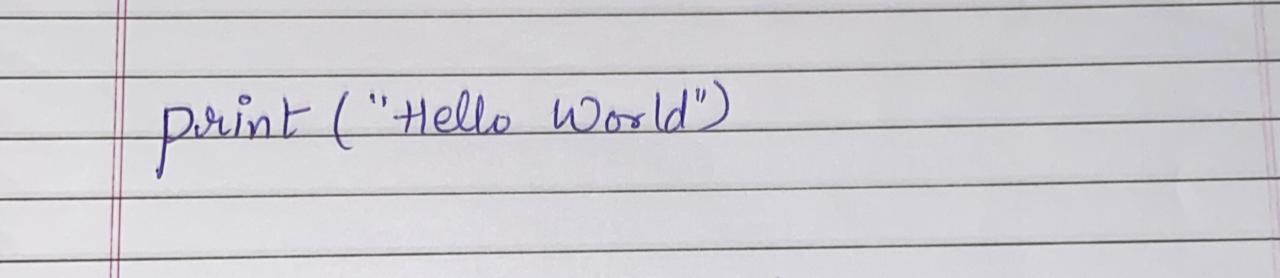 print ("Hello World")